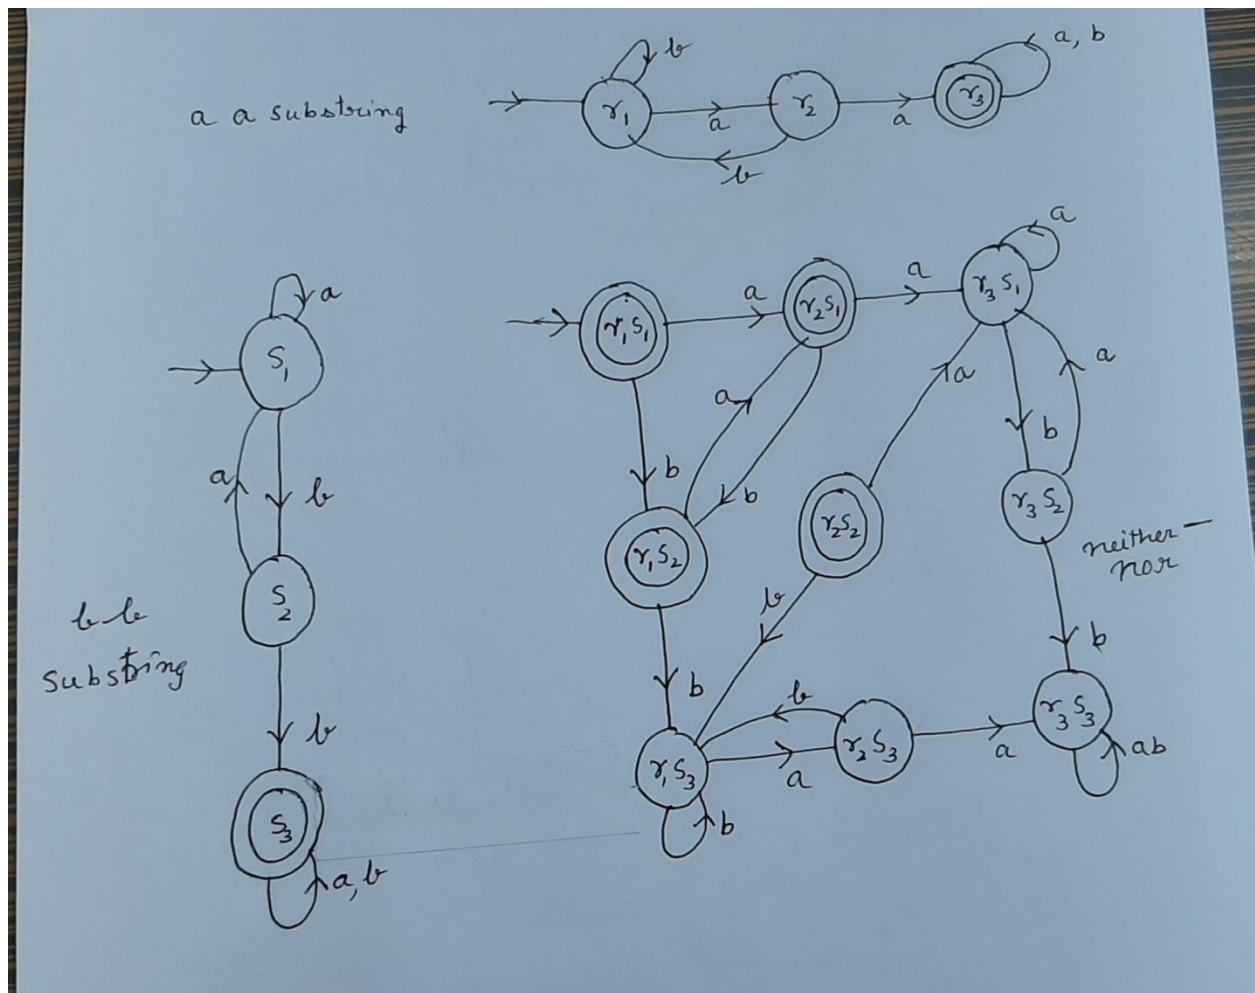 a a substring
r1
b
a
r2
b
a
r3
a, b
S1
a
a
b
S2
b b
substring
b
S3
a, b
r1S1
a
r2S1
a
r3S1
a
b
a
b
a
b
a
r1S2
r2S2
r3S2
neither –
nor
b
b
b
r1S3
b
a
b
r2S3
a
r3S3
ab